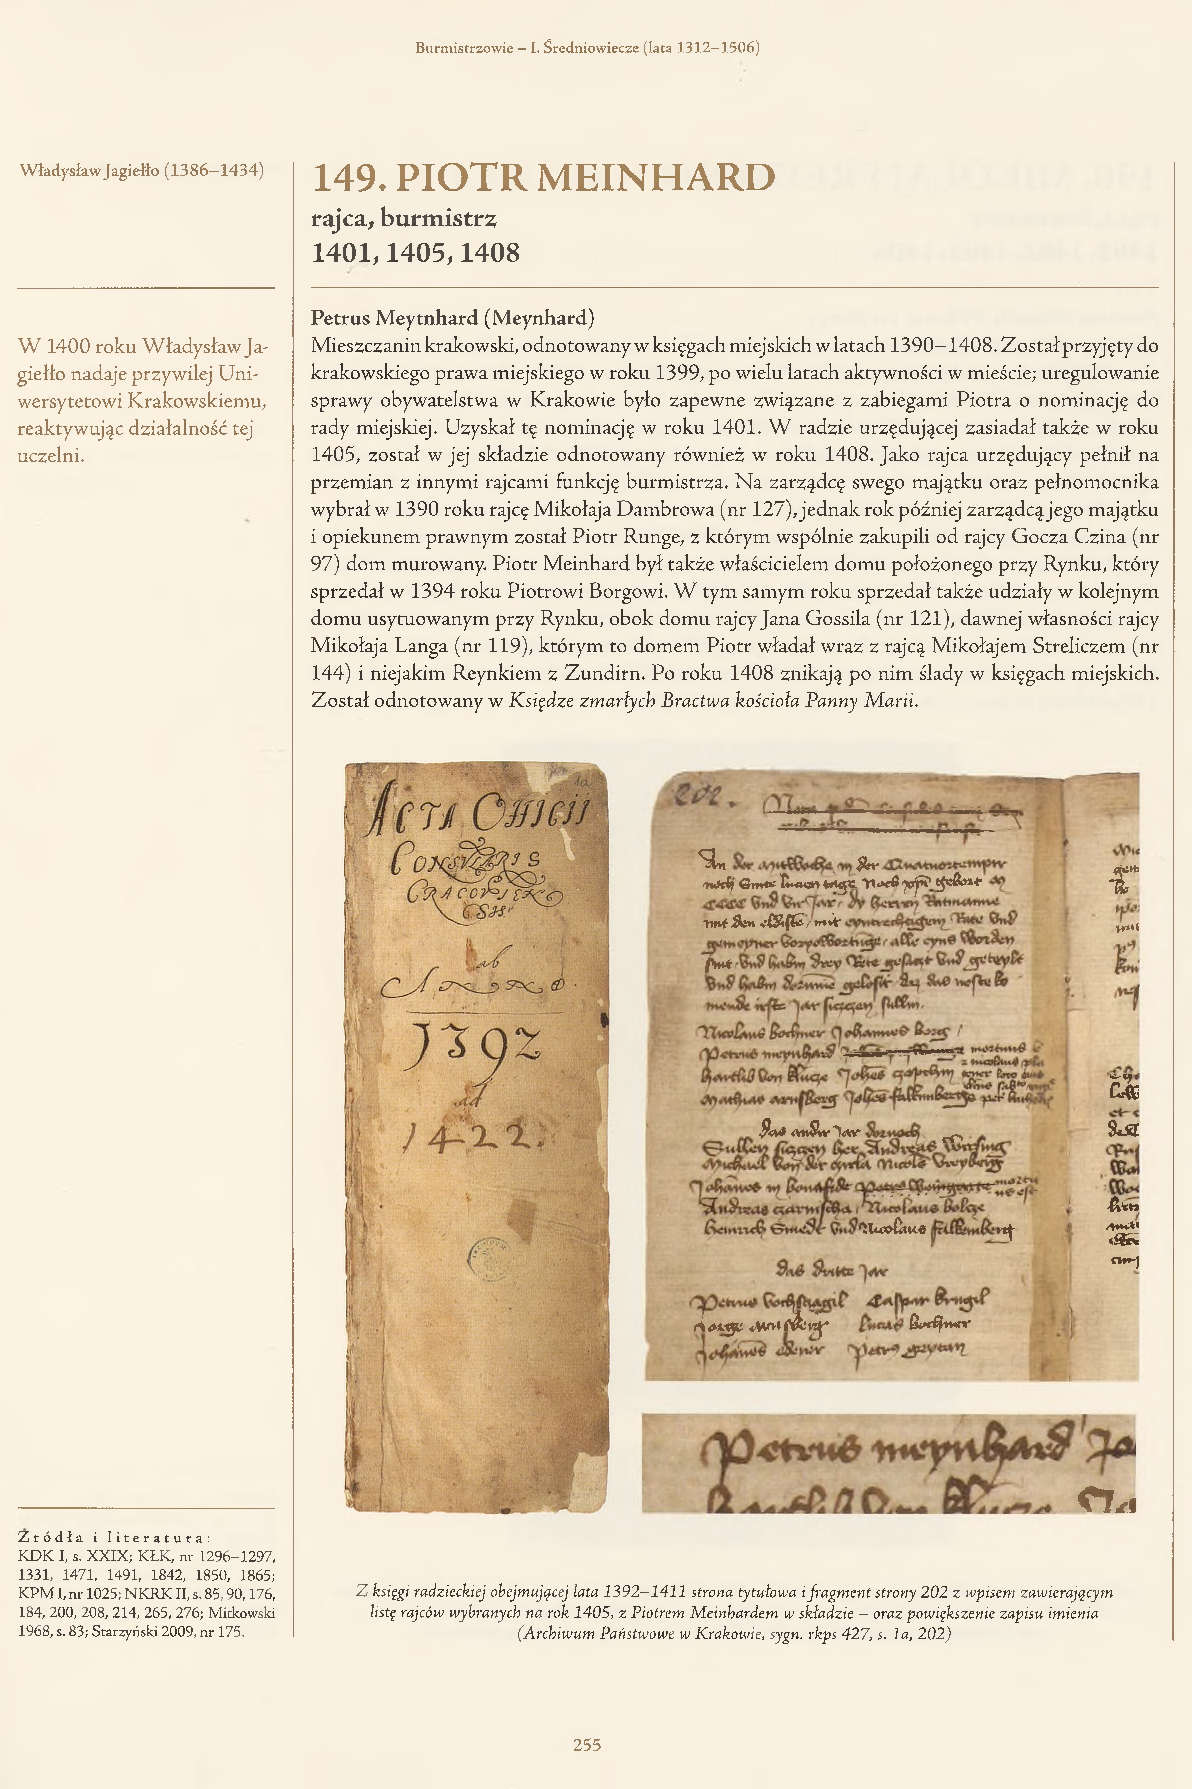 Burmistrzowie – I. Średniowiecze (lata 1312–1506)
Władysław Jagiełło (1386–1434)
W 1400 roku Władysław Ja-
giełło nadaje przywilej Uni-
wersytetowi Krakowskiemu,
reaktywując działalność tej
uczelni.
149. PIOTR MEINHARD
rajca, burmistrz
1401, 1405, 1408
Petrus Meytnhard (Meynhard)
Mieszczanin krakowski, odnotowany w księgach miejskich w latach 1390–1408. Został przyjęty do
krakowskiego prawa miejskiego w roku 1399, po wielu latach aktywności w mieście; uregulowanie
sprawy obywatelstwa w Krakowie było zapewne związane z zabiegami Piotra o nominację do
rady miejskiej. Uzyskał tę nominację w roku 1401. W radzie urzędującej zasiadał także w roku
1405, został w jej składzie odnotowany również w roku 1408. Jako rajca urzędujący pełnił na
przemian z innymi rajcami funkcję burmistrza. Na zarządcę swego majątku oraz pełnomocnika
wybrał w 1390 roku rajcę Mikołaja Dambrowa (nr 127), jednak rok później zarządcą jego majątku
i opiekunem prawnym został Piotr Runge, z którym wspólnie zakupili od rajcy Gocza Czina (nr
97) dom murowany. Piotr Meinhard był także właścicielem domu położonego przy Rynku, który
sprzedał w 1394 roku Piotrowi Borgowi. W tym samym roku sprzedał także udziały w kolejnym
domu usytuowanym przy Rynku, obok domu rajcy Jana Gossila (nr 121), dawnej własności rajcy
Mikołaja Langa (nr 119), którym to domem Piotr władał wraz z rajcą Mikołajem Streliczem (nr
144) i niejakim Reynkiem z Zundirn. Po roku 1408 znikają po nim ślady w księgach miejskich.
Został odnotowany w Księdze zmarłych Bractwa kościoła Panny Marii.
1a
ACTA OFFICII
CONSULARIS
CRACOVIEN
SIS
ab
Anno
1392
ad
1422.
202.
Nicolaus Bochner Johannes Borg
Petrus meynhard
das andir Jar dornoch
das dritte Jar
Petrus meynhard Jo
Źródła i literatura:
KDK I, s. XXIX; KŁK, nr 1296–1297,
1331, 1471, 1491, 1842, 1850, 1865;
KPM I, nr 1025; NKRK II, s. 85, 90, 176,
184, 200, 208, 214, 265, 276; Mitkowski
1968, s. 83; Starzyński 2009, nr 175.
Z księgi radzieckiej obejmującej lata 1392–1411 strona tytułowa i fragment strony 202 z wpisem zawierającym
listę rajców wybranych na rok 1405, z Piotrem Meinhardem w składzie – oraz powiększenie zapisu imienia
(Archiwum Państwowe w Krakowie, sygn. rkps 427, s. 1a, 202)
255